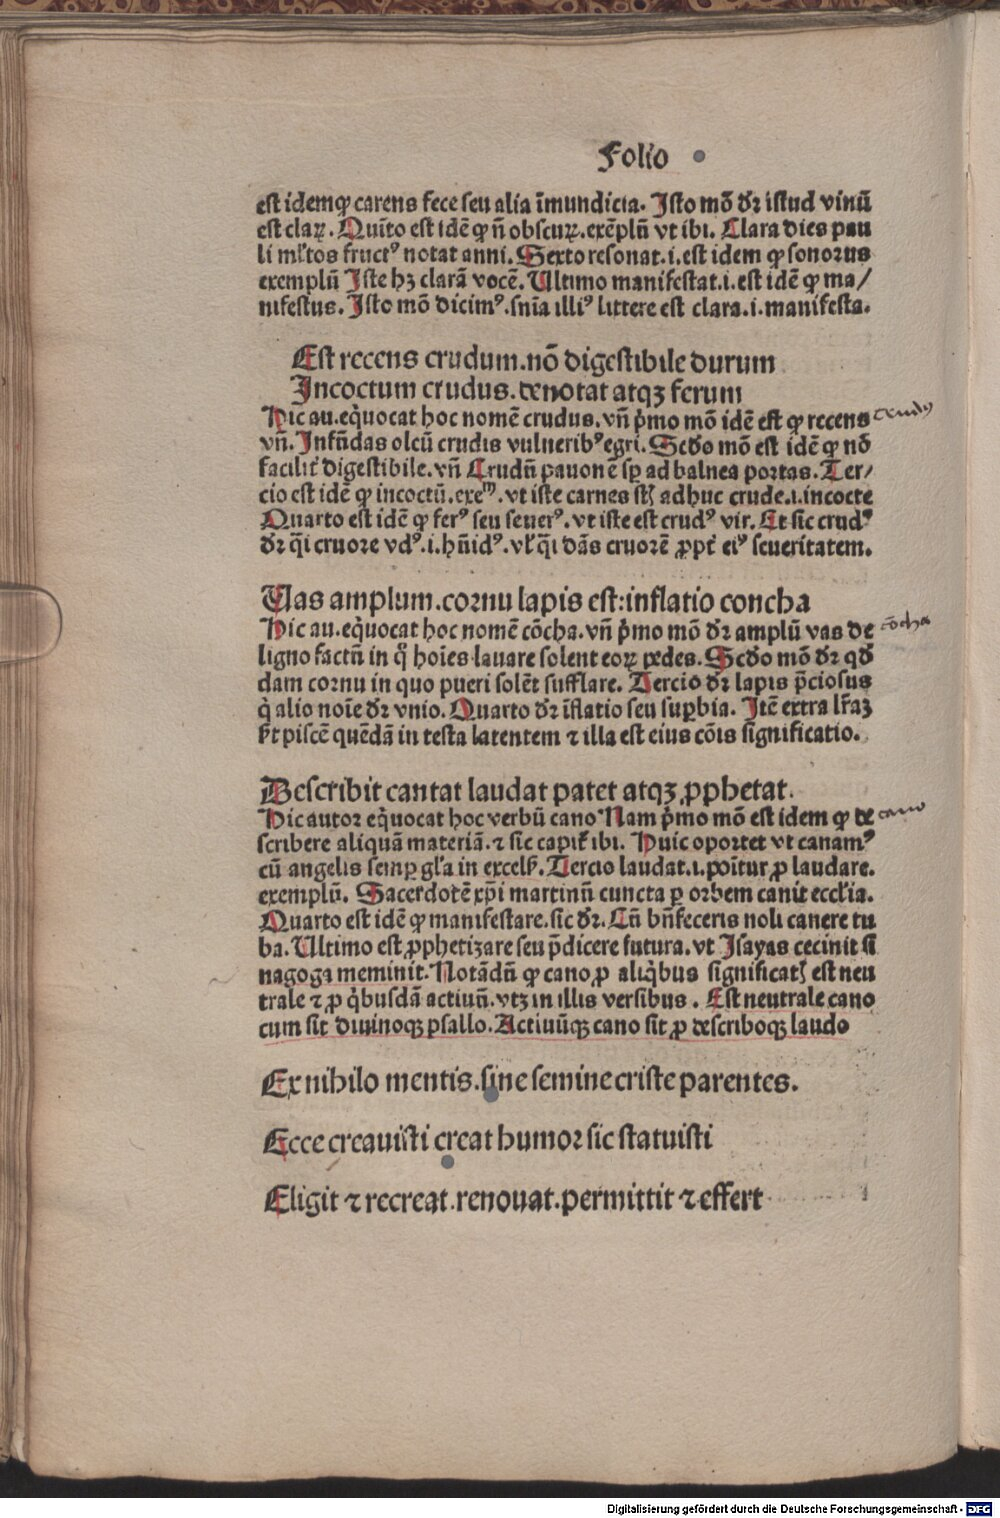 Folio
est idemꝙ carens fece seu alia īmundicia. Isto mō dr̄ istud vinū
est claꝝ. Quīto est idē ꝙ n̄ obscuꝝ. exēplū vt ibi. Clara dies pau
li ml̓tos fruct⁹ notat anni. Sexto resonat .i. est idem ꝙ sonorus
exemplū Iste hꝫ clarā vocē. Ultimo manifestat .i. est idē ꝙ ma/
nifestus. Isto mō dicim⁹. snīa illi⁹ littere est clara .i. manifesta.
Est recens crudum. nō digestibile durum
Incoctum crudus. denotat atqꝫ ferum
Hic au. eq̇uocat hoc nomē crudus. vn̄ pͥmo mō idē est ꝙ recens
crudꝰ
vn̄. Infn̄das olcū crudis vulnerib⁹ egri. Scd̓o mō est idē ꝙ nō
facilit̓ digestibile. vn̄ Crudū pauonē sꝑ ad balnea portas. Ter/
cio est idē ꝙ incoctū. exeᵐ. vt iste carnes st̄ adhuc crude .i. incocte
Quarto est idē ꝙ fer⁹ seu seuer⁹. vt iste est crud⁹ vir. Et sic crud⁹
dr̄ q̄i cruore vd⁹ .i. hn̄id⁹. vl̓ q̄i dās cruorē ꝓpt̓ ei⁹ seueritatem.
Uas amplum. cornu lapis est: inflatio concha
Hic au. eq̇uocat hoc nomē cōcha. vn̄ pͥmo mō dr̄ amplū vas de
cōcha
ligno factū in q̊ hoīes lauare solent eoꝝ pedes. Scd̓o mō dr̄ qd̓
dam cornu in quo pueri solēt sufflare. Tercio dr̄ lapis p̄ciosus
q̇ alio noīe dr̄ vnio. Quarto dr̄ īflatio seu suꝑbia. Itē extra lr̄aꝫ
st̓ piscē quēdā in testa latentem ⁊ illa est eius cōis significatio.
Describit cantat laudat patet atqꝫ ꝓphetat.
Hic autor eq̇uocat hoc verbū cano Nam pͥmo mō est idem ꝙ de
cano
scribere aliquā materiā. ⁊ sic capit̓ ibi. Huic oportet vt canam⁹
cū angelis semꝑ gl̓a in excelẜ. Tercio laudat .i. poītur ꝓ laudare.
exemplū. Sacerdotē xp̄i martinū cuncta ꝑ orbem canit eccl̓ia.
Quarto est idē ꝙ manifestare. sic dr̄. Cū bn̄feceris noli canere tu
ba. Ultimo est ꝓphetizare seu p̄dicere futura. vt Isayas cecinit si
nagoga meminit. Notādū ꝙ cano ꝓ aliq̇bus significat̓ est neu
trale ⁊ ꝓ q̇busdā actiuū. vtꝫ in illis versibus. Est neutrale cano
cum sit diuinoqꝫ psallo. Actiuūqꝫ cano sit ꝓ describoqꝫ laudo
Ex nihilo mentis. sine semine criste parentes.
Ecce creauisti creat humor sic statuisti
Eligit ⁊ recreat. renouat. permittit ⁊ effert
Digitalisierung gefördert durch die Deutsche Forschungsgemeinschaft - DFG